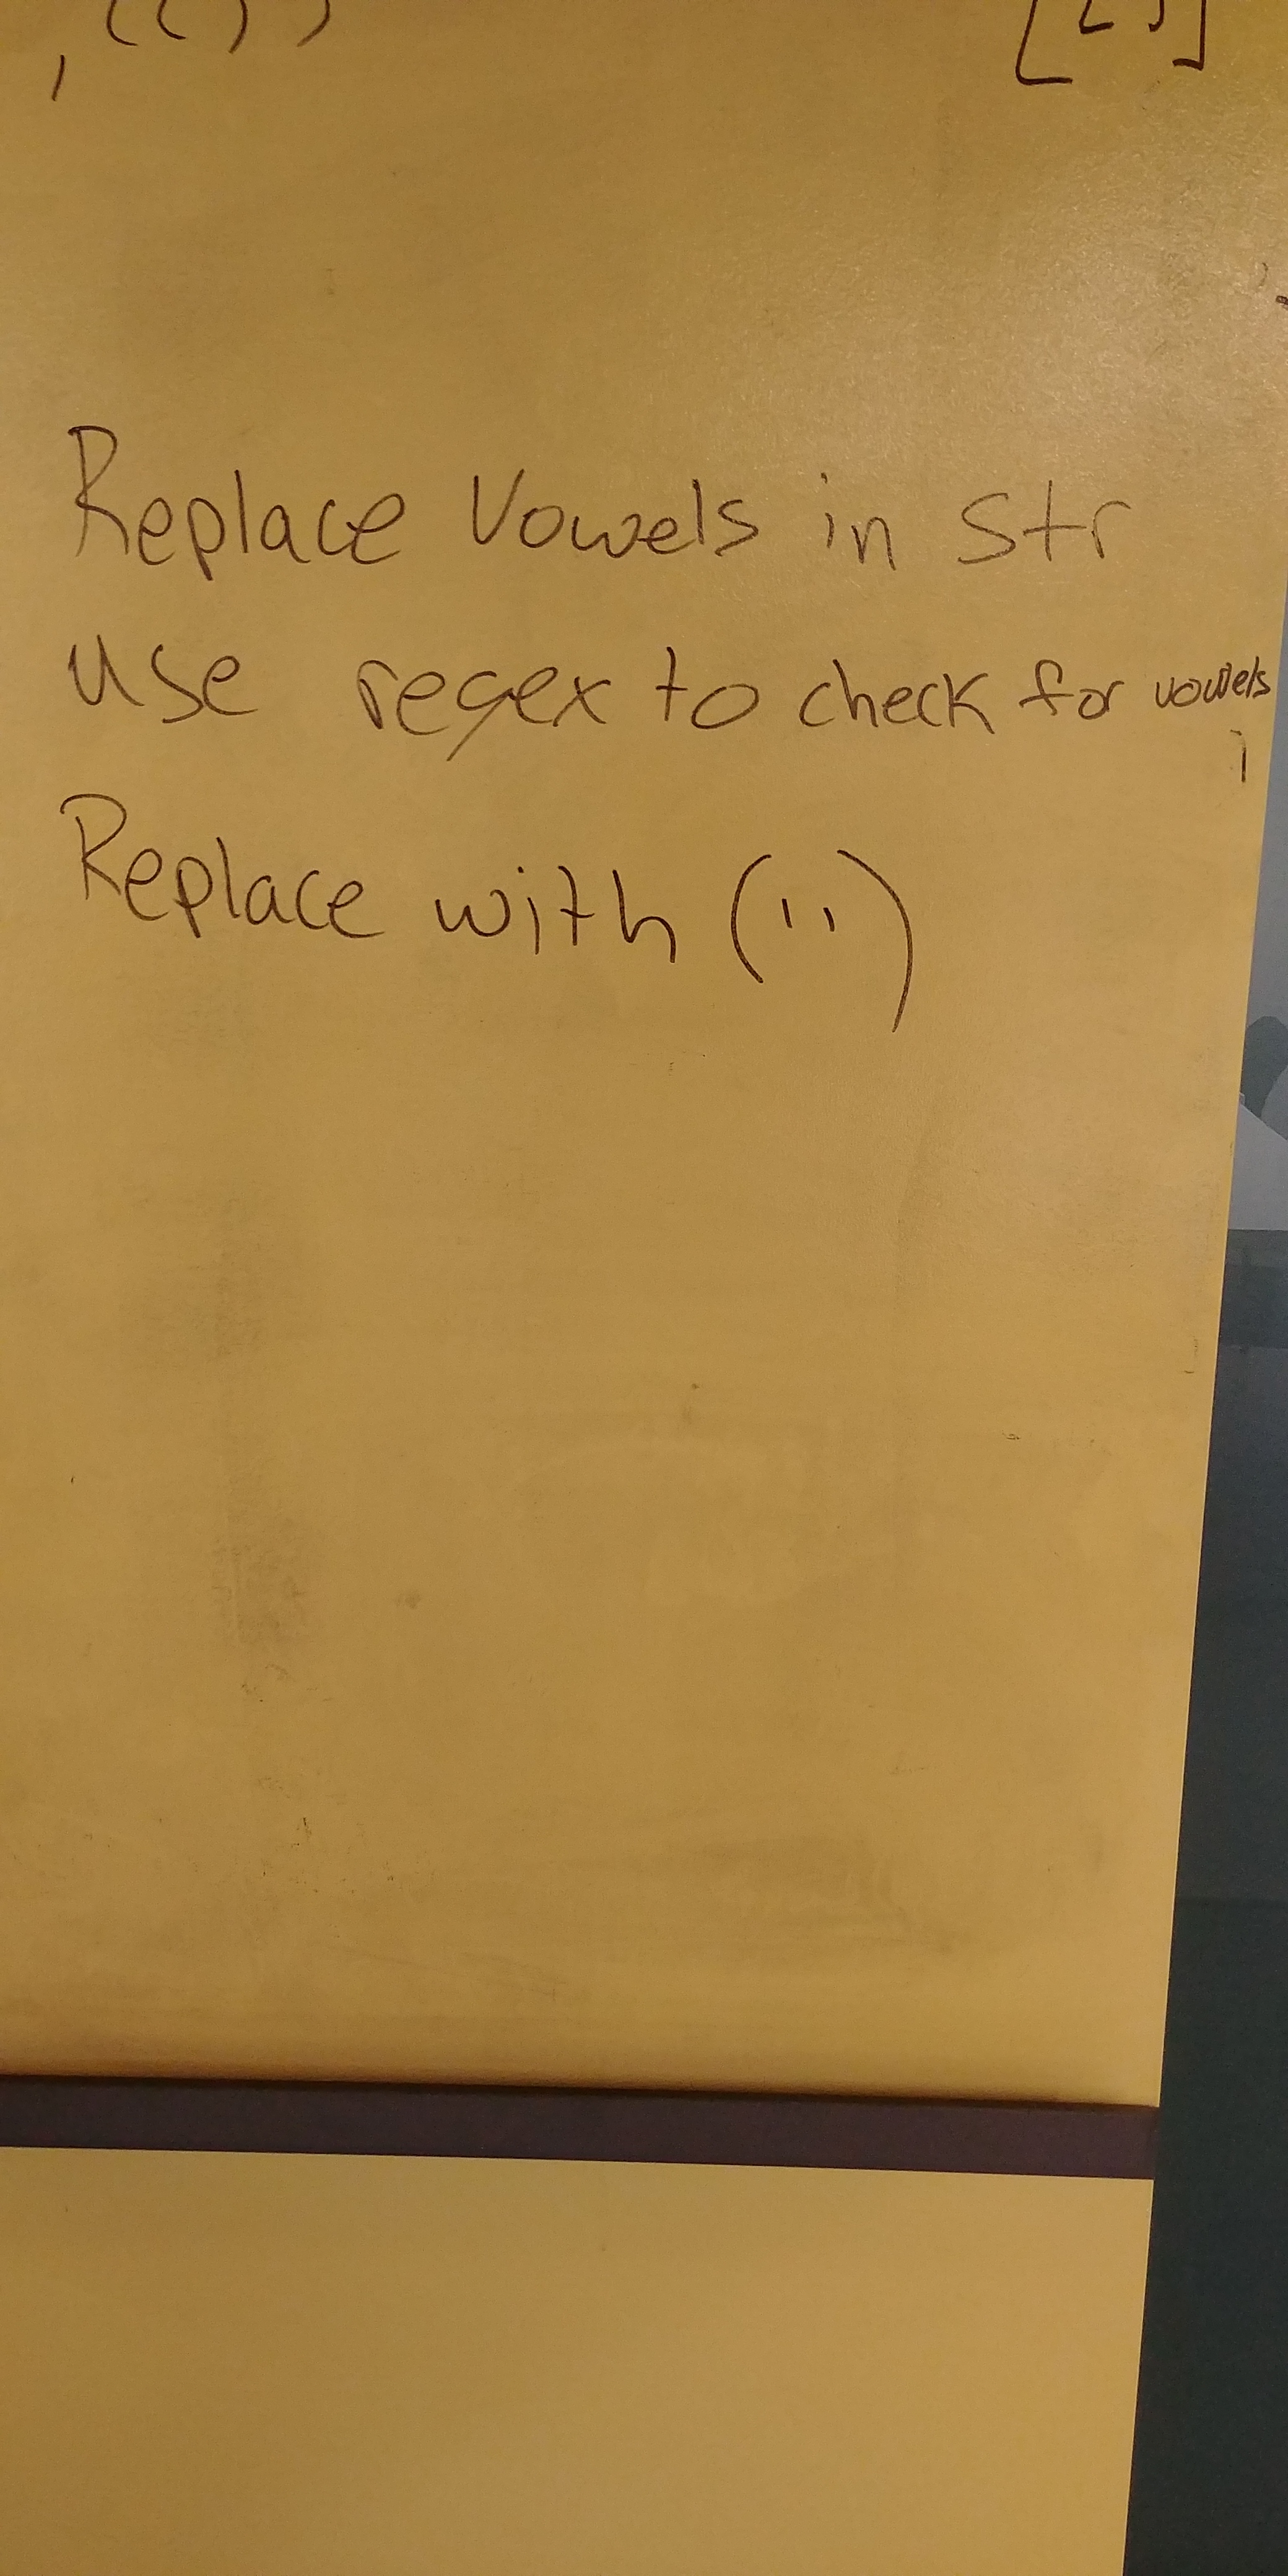 , (( ) )
[[ ]]
Replace Vowels in str
use regex to check for vowels
Replace with ('')